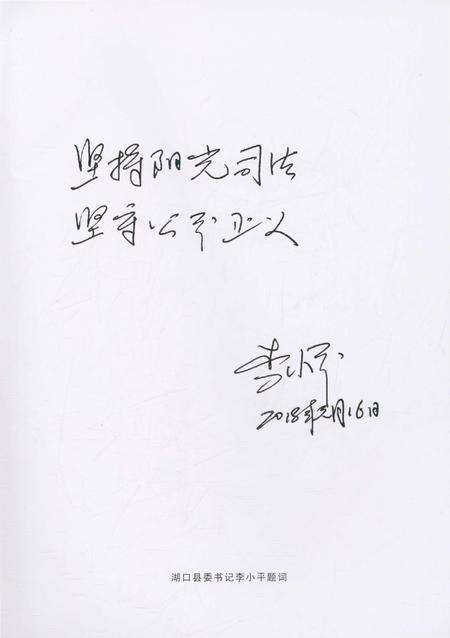 坚持阳光司法
坚守公平正义
李小平
2018年元月16日
湖口县委书记李小平题词